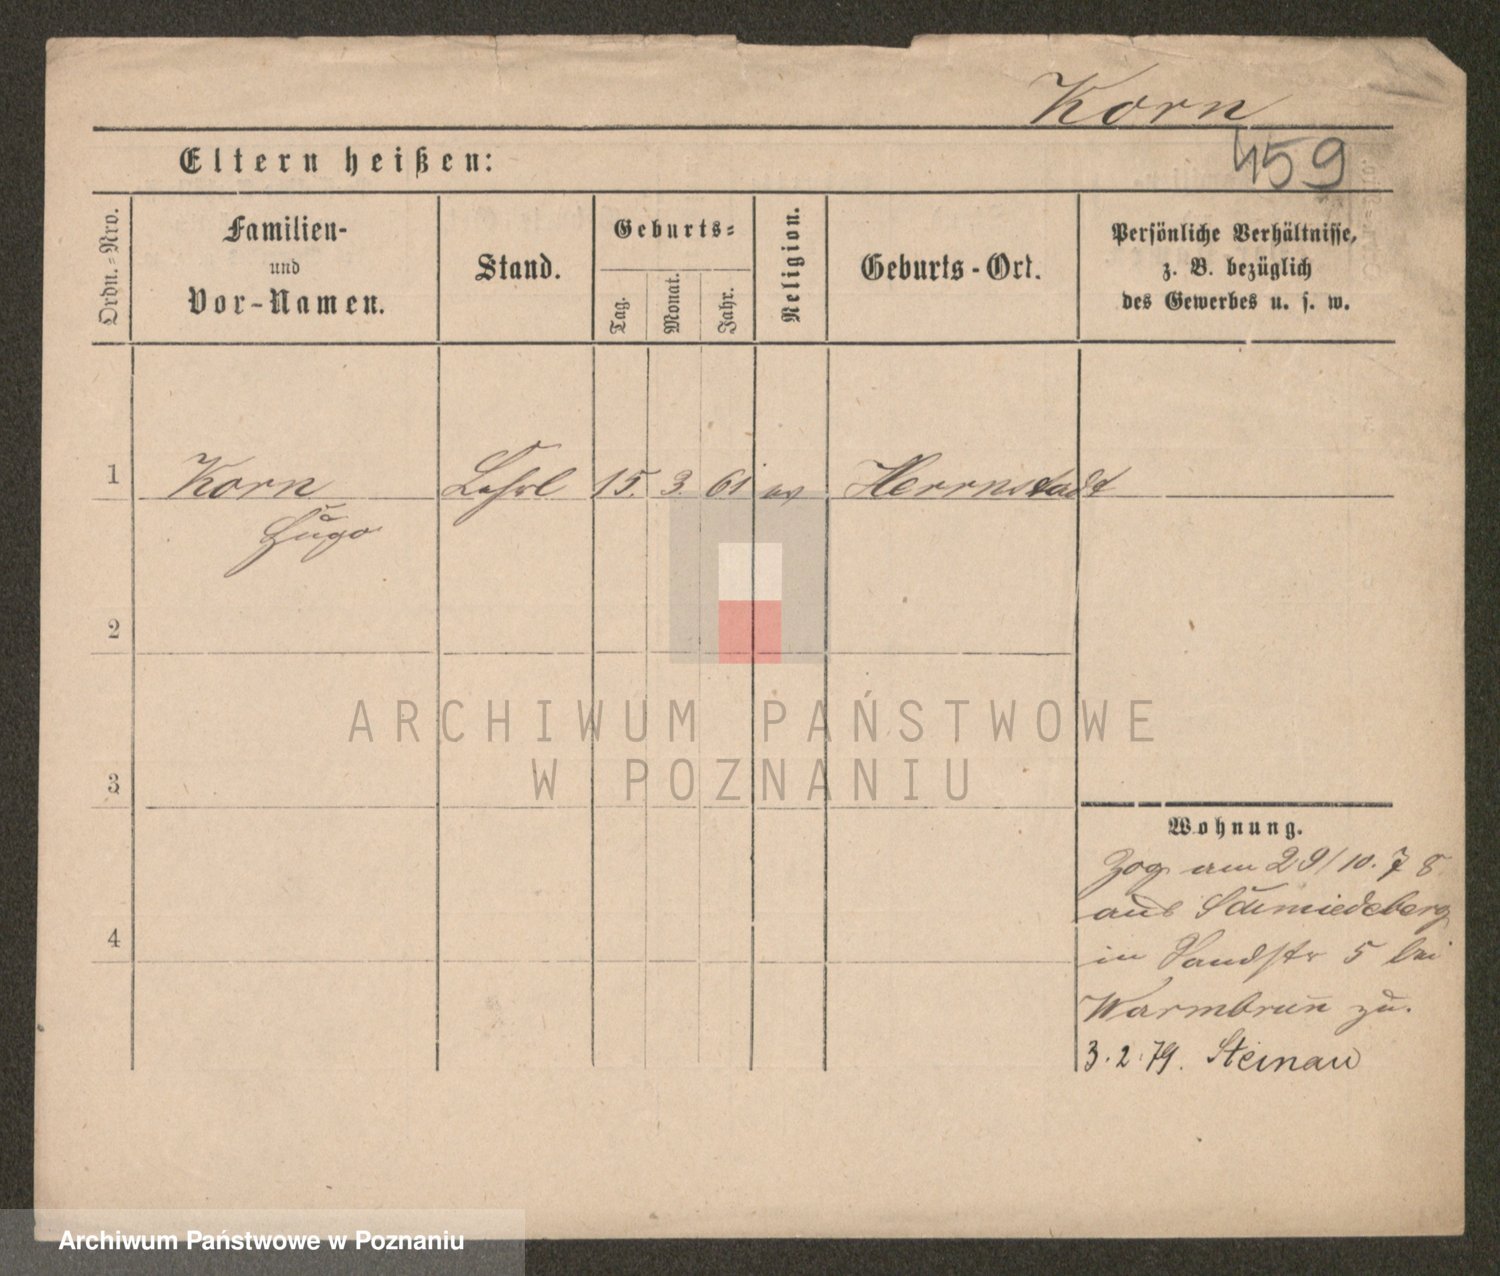 Korn
459
Eltern heißen:
Ordn.-Nro.
Familien-
und
Vor-Namen.
Stand.
Geburts-
Tag.
Monat.
Jahr.
Religion.
Geburts-Ort.
Persönliche Verhältnisse,
z. B. bezüglich
des Gewerbes u. s. w.
1 Korn Lehrl 15. 3. 61 ev Herrnstadt
Hugo
2
3
4
Wohnung.
Zog am 29/10.78
aus Schmiedeberg
in Sandstr 5 bei
Warmbrun zu.
3.2.79. Steinau
ARCHIWUM PAŃSTWOWE
W POZNANIU
Archiwum Państwowe w Poznaniu